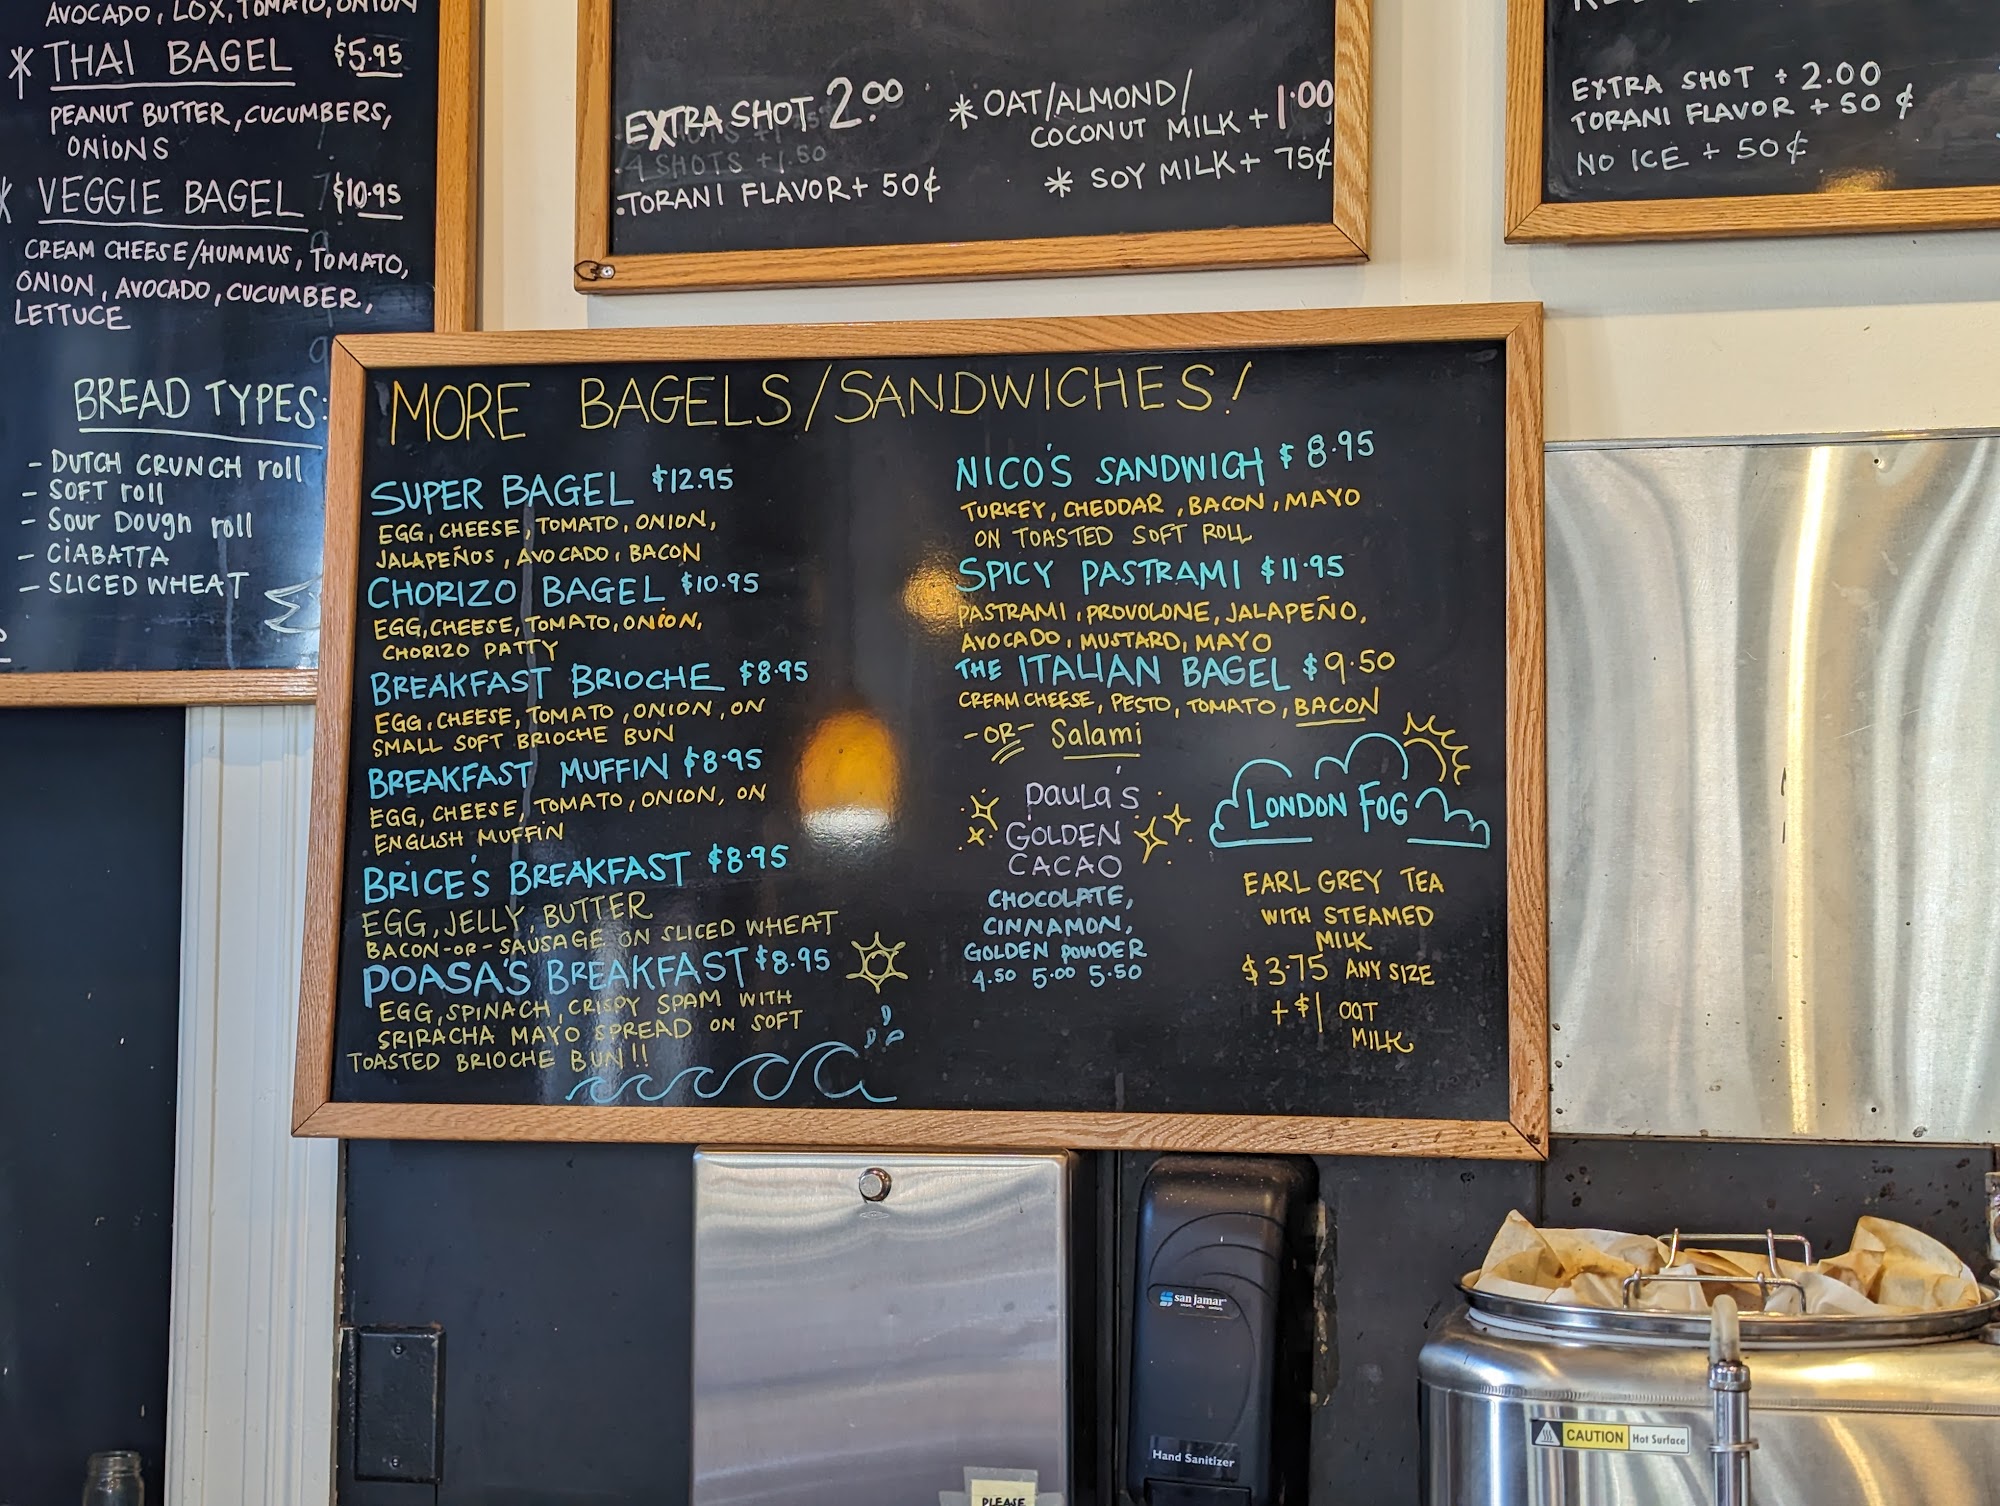 AVOCADO, LOX, TOMATO, ONION
THAI BAGEL $5.95
PEANUT BUTTER, CUCUMBERS,
ONIONS
VEGGIE BAGEL $10.95
CREAM CHEESE/HUMMUS, TOMATO,
ONION, AVOCADO, CUCUMBER,
LETTUCE
BREAD TYPES:
- DUTCH CRUNCH roll
- SOFT roll
- Sour Dough roll
- CIABATTA
- SLICED WHEAT
EXTRA SHOT 2.00
4 SHOTS +1.50
TORANI FLAVOR + 50¢
* OAT/ALMOND/
COCONUT MILK + 1.00
* SOY MILK + 75¢
EXTRA SHOT + 2.00
TORANI FLAVOR + 50 ¢
NO ICE + 50¢
MORE BAGELS/SANDWICHES!
SUPER BAGEL $12.95
EGG, CHEESE, TOMATO, ONION,
JALAPEÑOS, AVOCADO, BACON
CHORIZO BAGEL $10.95
EGG, CHEESE, TOMATO, ONION,
CHORIZO PATTY
BREAKFAST BRIOCHE $8.95
EGG, CHEESE, TOMATO, ONION, ON
SMALL SOFT BRIOCHE BUN
BREAKFAST MUFFIN $8.95
EGG, CHEESE, TOMATO, ONION, ON
ENGLISH MUFFIN
BRICE'S BREAKFAST $8.95
EGG, JELLY, BUTTER
BACON-OR-SAUSAGE ON SLICED WHEAT
POASA'S BREAKFAST $8.95
EGG, SPINACH, CRISPY SPAM WITH
SRIRACHA MAYO SPREAD ON SOFT
TOASTED BRIOCHE BUN!!
NICO'S SANDWICH $8.95
TURKEY, CHEDDAR, BACON, MAYO
ON TOASTED SOFT ROLL
SPICY PASTRAMI $11.95
PASTRAMI, PROVOLONE, JALAPEÑO,
AVOCADO, MUSTARD, MAYO
THE ITALIAN BAGEL $9.50
CREAM CHEESE, PESTO, TOMATO, BACON
-OR- Salami
PAULA'S
GOLDEN
CACAO
CHOCOLATE,
CINNAMON,
GOLDEN POWDER
4.50 5.00 5.50
LONDON FOG
EARL GREY TEA
WITH STEAMED
MILK
$3.75 ANY SIZE
+ $1 OAT
MILK
san jamar
Hand Sanitizer
CAUTION Hot Surface
PLEASE